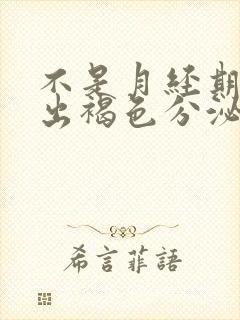 不是月经期
出褐色分泌
希言菲語